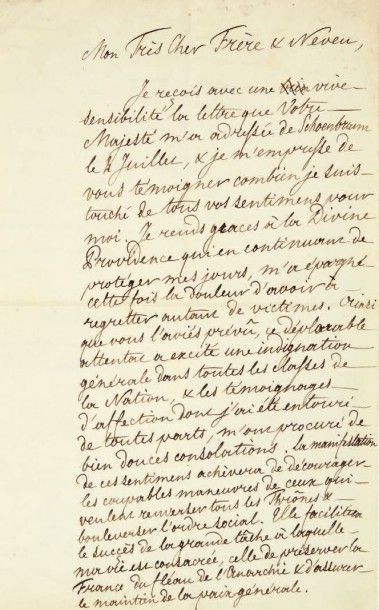 Mon Très Cher Frère & Neveu,
Je reçois avec une vive
sensibilité, la lettre que Votre
Majesté m'a adressée de Schoenbrunn
le 4 Juillet, & je m'empresse de
vous témoigner combien je suis
touché de tous vos sentimens pour
moi. Je rends graces à la Divine
Providence qui en continuant de
protéger mes jours, m'a épargné
cette fois la douleur d'avoir à
regretter autant de victimes. Ainsi
que vous l'aviés prévû, ce déplorable
attentat a excité une indignation
générale dans toutes les classes de
la Nation, & les témoignages
d'affection dont j'ai été entouré
de toutes parts, m'ont procuré de
bien douces consolations. La manifestation
de ces sentimens achèvera de décourager
les coupables manœuvres de ceux qui
veulent renverser tous les Thrônes &
bouleverser l'ordre social. Elle facilitera
le succès de la grande tâche à laquelle
ma vie est consacrée, celle de préserver la
France du fléau de l'Anarchie & d'assurer
le maintien de la paix générale.